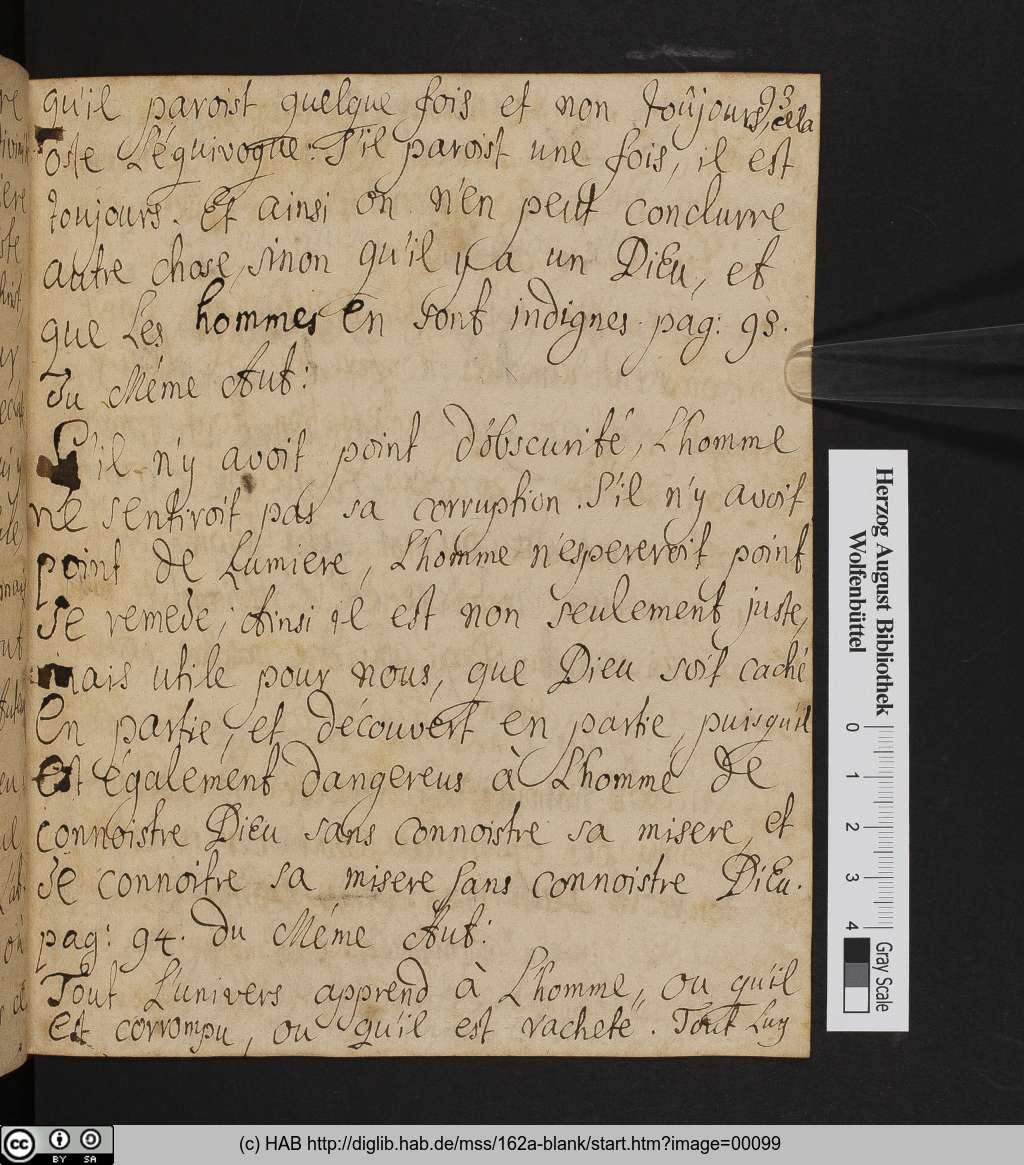 93
qu'il paroist quelque fois et non toûjours, cela
oste L'équivoque. S'il paroist une fois, il est
toujours. Et ainsi on n'en peut conclurre
autre chose, sinon qu'il y a un Dieu, et
que Les hommes en sont indignes. pag: 93.
Du Méme Aut:
S'il n'y avoit point d'obscurité, L'homme
ne sentiroit pas sa corruption. S'il n'y avoit
point de Lumiere, L'homme n'espereroit point
de remede; Ainsi il est non seulement juste,
mais utile pour nous, que Dieu soit caché
En partie, et découvert en partie, puisqu'il
Est également dangereus à L'homme de
connoistre Dieu sans connoistre sa misere, et
de connoitre sa misere sans connoistre Dieu.
pag: 94. Du Méme Aut:
Tout L'univers apprend à L'homme, ou qu'il
est corrompu, ou qu'il est racheté. Tout Luy
Herzog August Bibliothek
Wolfenbüttel
0 1 2 3 4
Gray Scale
cc BY SA
(c) HAB http://diglib.hab.de/mss/162a-blank/start.htm?image=00099